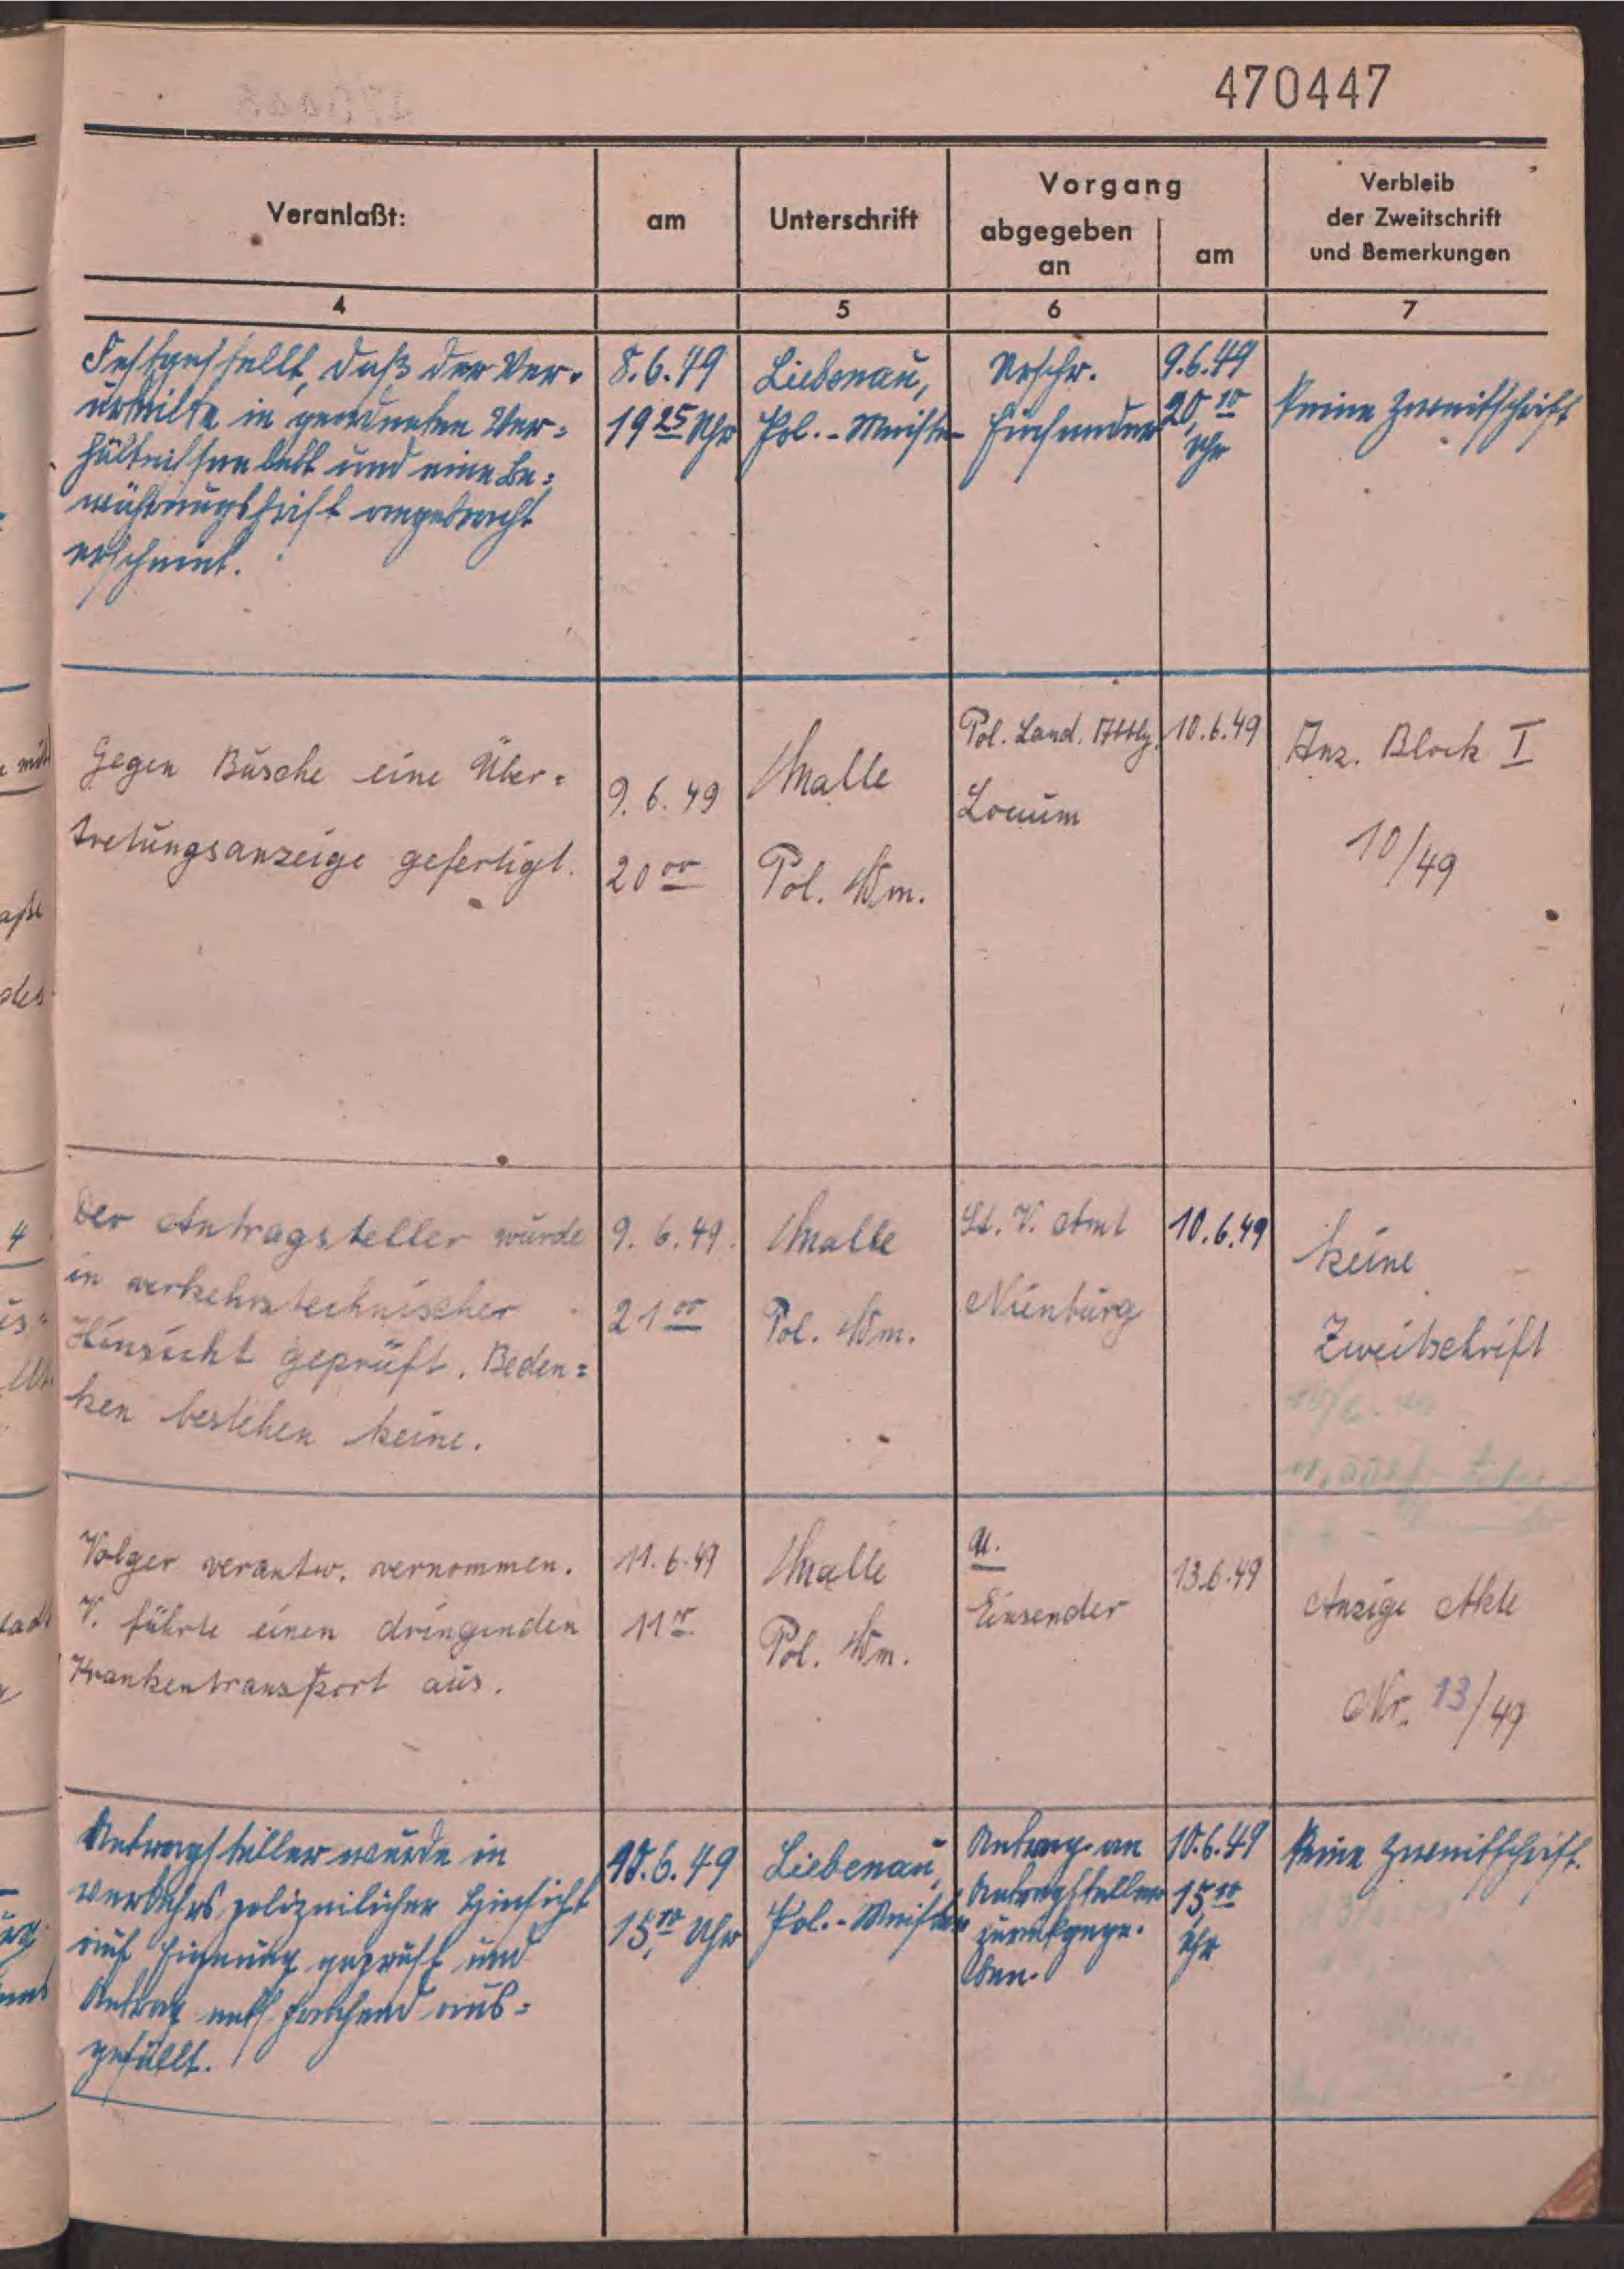 470447
Veranlaßt:
am
Unterschrift
Vorgang
abgegeben
an
am
Verbleib
der Zweitschrift
und Bemerkungen
4
5
6
7
Festgestellt, daß der Ver-
urteilte in geordneten Ver=
hältnissen lebt und eine Be=
währungsfrist angebracht
erscheint.
8.6.49
19 25 Uhr
Liebenau,
Pol.-Meister
Urschr.
Einsender
9.6.49
20,10
Uhr
Keine Zweitschrift
Gegen Büsche eine Über=
tretungsanzeige gefertigt.
9.6.49
20 00
Malle
Pol. Wm.
Pol. Land. Abtlg.
Loccum
10.6.49
Anz. Block I
10/49
Der Antragsteller wurde
in verkehrstechnischer
Hinsicht geprüft. Beden=
ken bestehen keine.
9.6.49.
21 00
Malle
Pol. Wm.
St. V. Amt
Nienburg
10.6.49
keine
Zweitschrift
Volger verantw. vernommen.
V. führte einen dringenden
Krankentransport aus.
11.6.49
11 00
Malle
Pol. Wm.
U.
Einsender
13.6.49
Anzeige Akte
Nr. 13/49
Antragsteller wurde in
verkehrspolizeilicher Hinsicht
auf Eignung geprüft und
Antrag entsprechend aus=
gefüllt.
10.6.49
15,10 Uhr
Liebenau,
Pol.-Meister
Antrag an
Antragsteller
zurückgege-
ben.
10.6.49
15,10
Uhr
Keine Zweitschrift.